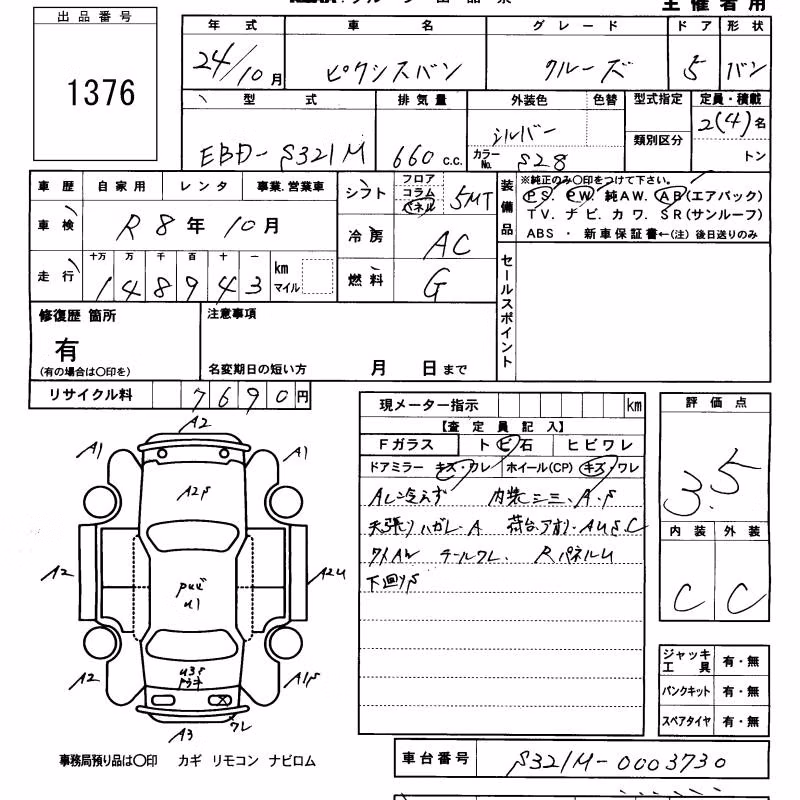 主催者用
出品番号
1376
年式 車名 グレード ドア 形状
24/10月 ピクシスバン クルーズ 5 バン
型式 排気量 外装色 色替 型式指定 定員・積載
EBD-S321M 660 c.c. シルバー 2(4)名
カラーNo. S28 類別区分 トン
車歴 自家用 レンタ 事業.営業車
車検 R8年10月
走行 十万 万 千 百 十 一
148943 km マイル
シフト フロア コラム パネル 5MT
冷房 AC
燃料 G
装備品 ※純正のみ〇印をつけて下さい。
PS. PW. 純AW. AB(エアバック)
TV. ナビ. カワ. SR(サンルーフ)
ABS ・ 新車保証書←(注) 後日送りのみ
セールスポイント
修復歴 箇所
有
(有の場合は〇印を)
注意事項
名変期日の短い方 月 日まで
リサイクル料 7690円
現メーター指示 km
【査定員記入】
Fガラス トビ石 ヒビワレ
ドアミラー キズ・ワレ ホイール(CP) キズ・ワレ
AC冷えず 内装シミ、A.S
天張りハガレ.A 荷台アオリ.AUS.C
ワレ. RパネルU
下回りS
評価点
3.5
内装 外装
C C
A2
A1 A1
A2S
A2 A2U
U1
U3S
A2 A1S
A3 ワレ
ジャッキ工具 有・無
パンクキット 有・無
スペアタイヤ 有・無
事務局預り品は〇印 カギ リモコン ナビロム
車台番号 S321M-0003730